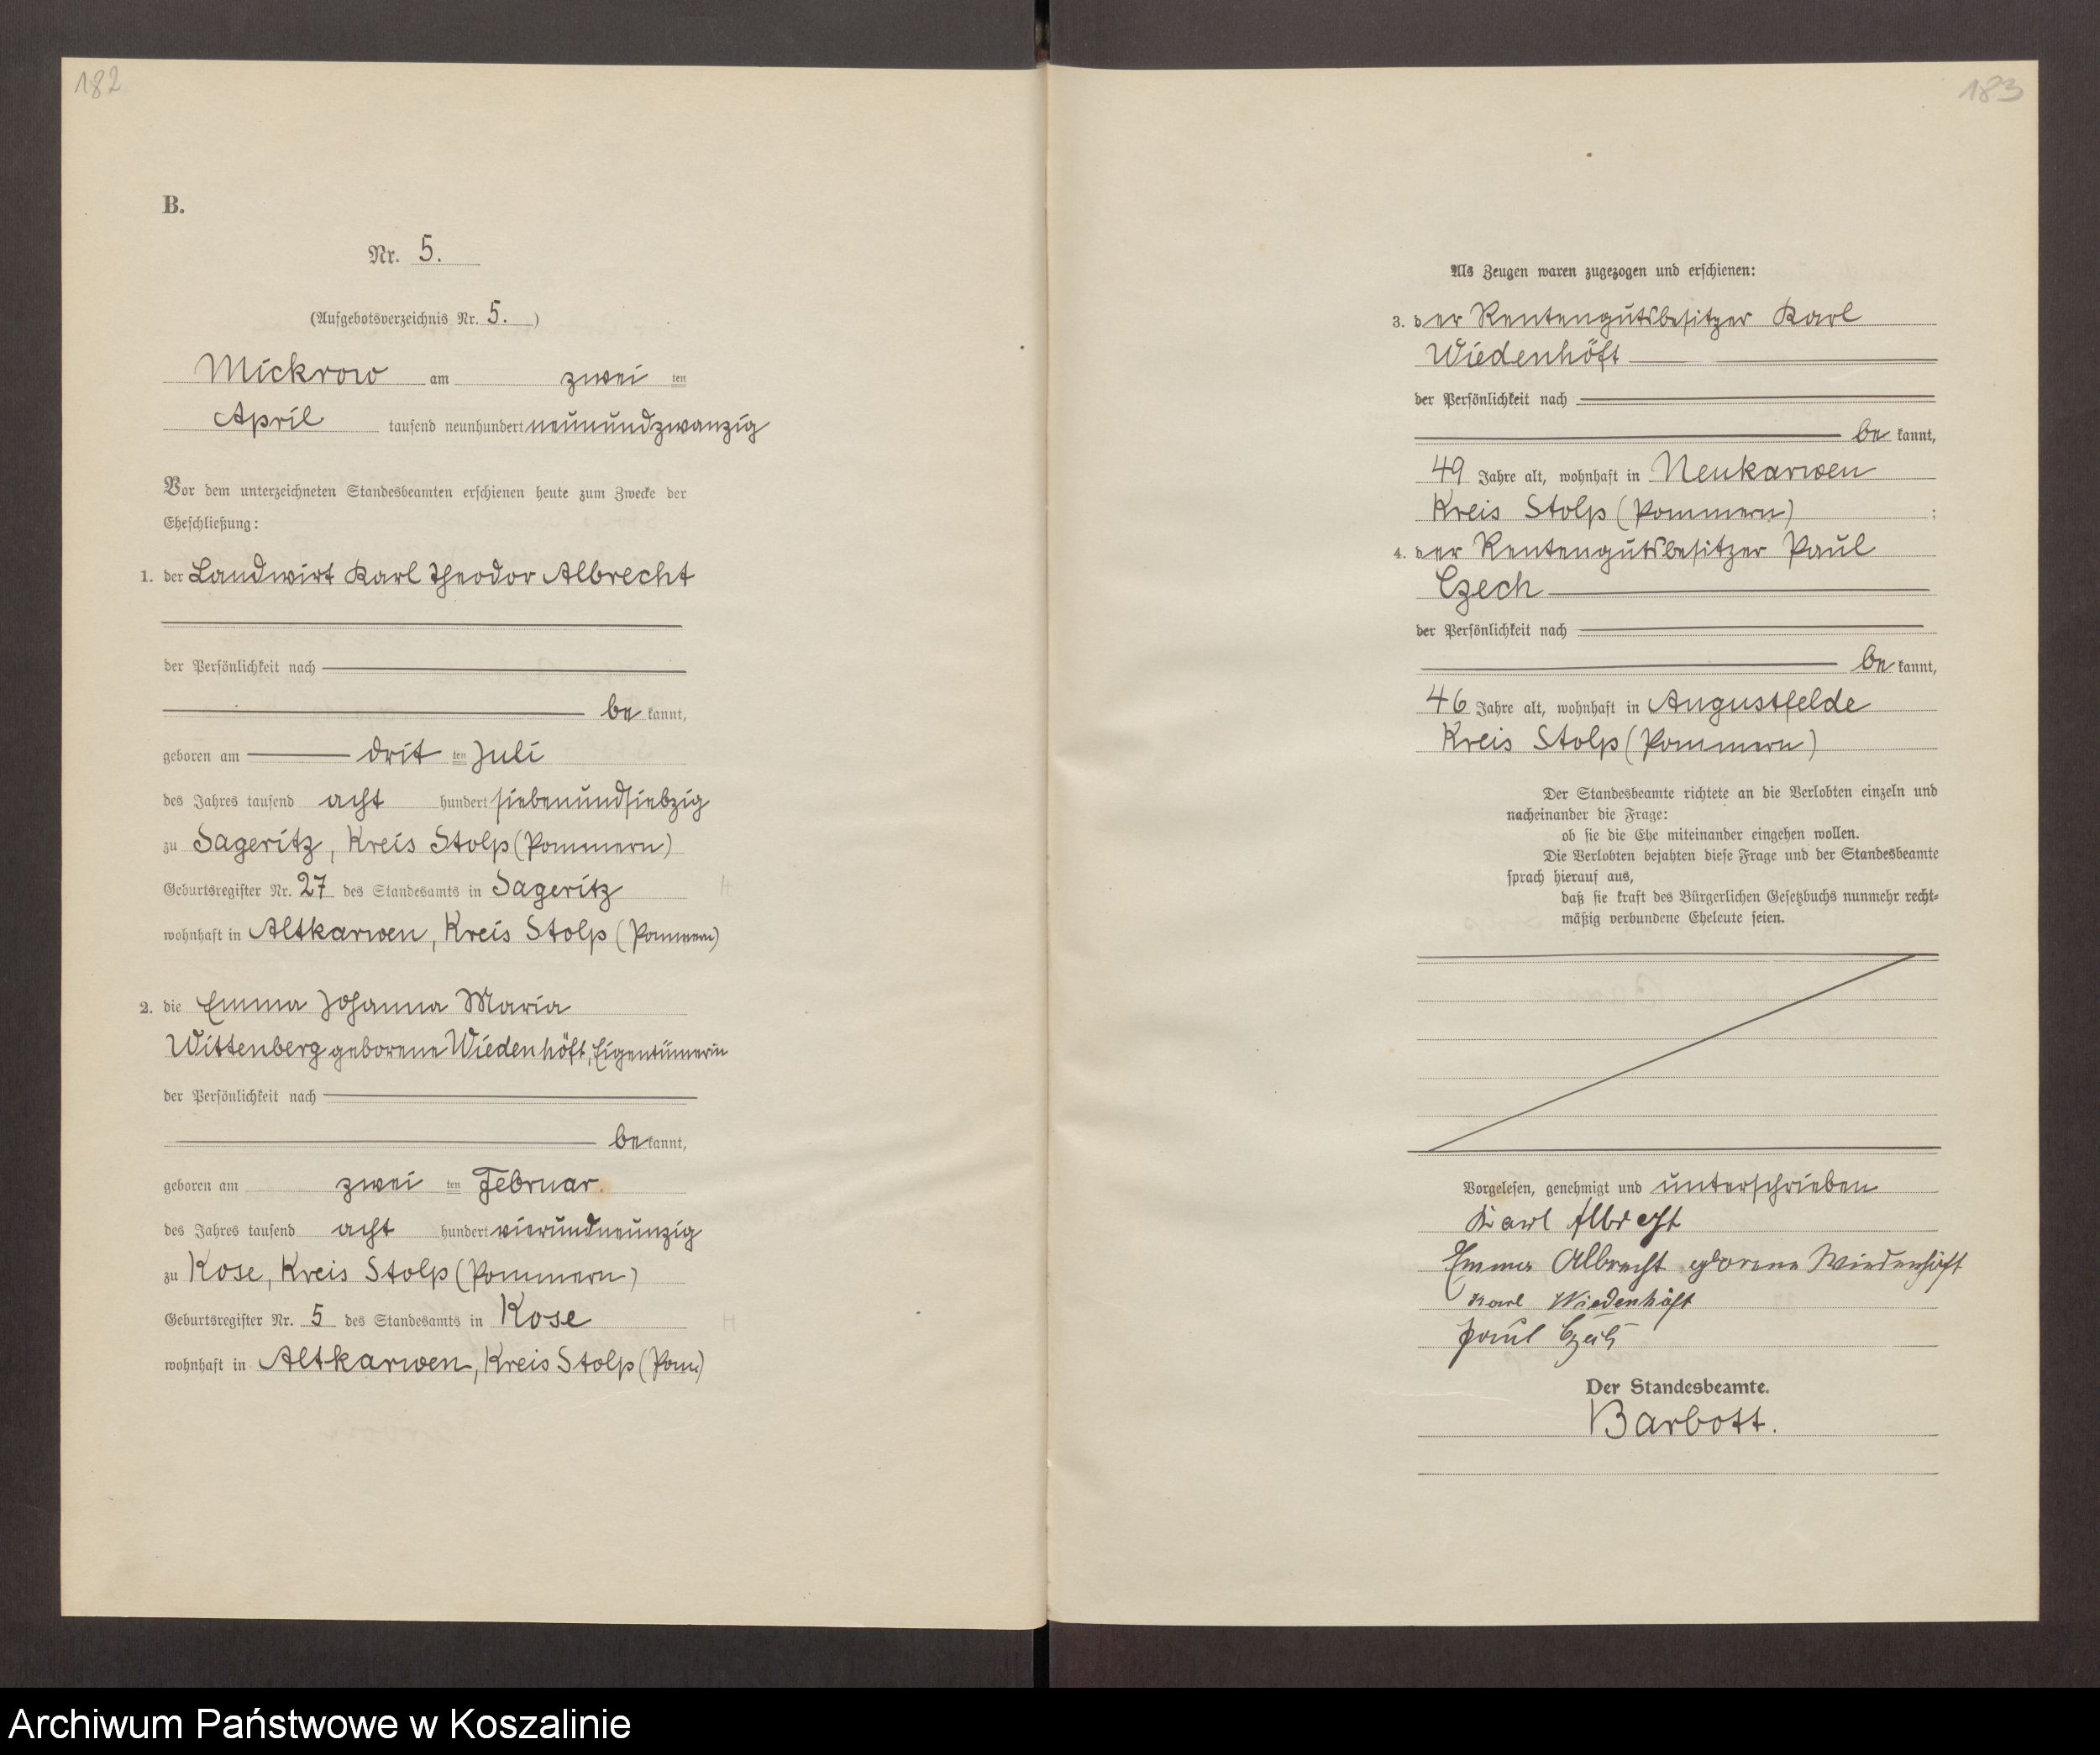 182
B.
Nr. 5.
(Aufgebotsverzeichnis Nr. 5. )
Mickrow am zwei ten
April tausend neunhundert neunundzwanzig
Vor dem unterzeichneten Standesbeamten erschienen heute zum Zwecke der
Eheschließung:
1. der Landwirt Karl Theodor Albrecht
der Persönlichkeit nach
be kannt,
geboren am drit ten Juli
des Jahres tausend acht hundert siebenundsiebzig
zu Sageritz, Kreis Stolp (Pommern)
Geburtsregister Nr. 27 des Standesamts in Sageritz
wohnhaft in Altkarwen, Kreis Stolp (Pommern)
2. die Emma Johanna Maria
Wittenberg geborene Wiedenhöft, Eigentümerin
der Persönlichkeit nach
be kannt,
geboren am zwei ten Februar.
des Jahres tausend acht hundert vierundneunzig
zu Kose, Kreis Stolp (Pommern)
Geburtsregister Nr. 5 des Standesamts in Kose
wohnhaft in Altkarwen, Kreis Stolp (Pom.)
183
Als Zeugen waren zugezogen und erschienen:
3. der Rentengutsbesitzer Karl
Wiedenhöft
der Persönlichkeit nach
be kannt,
49 Jahre alt, wohnhaft in Neukarwen
Kreis Stolp (Pommern) ;
4. der Rentengutsbesitzer Paul
Czech
der Persönlichkeit nach
be kannt,
46 Jahre alt, wohnhaft in Augustfelde
Kreis Stolp (Pommern)
Der Standesbeamte richtete an die Verlobten einzeln und
nacheinander die Frage:
ob sie die Ehe miteinander eingehen wollen.
Die Verlobten bejahten diese Frage und der Standesbeamte
sprach hierauf aus,
daß sie kraft des Bürgerlichen Gesetzbuchs nunmehr recht-
mäßig verbundene Eheleute seien.
Vorgelesen, genehmigt und unterschrieben
Karl Albrecht
Emma Albrecht geborene Wiedenhöft
Karl Wiedenhöft
Paul Czech
Der Standesbeamte.
Barbott.
Archiwum Państwowe w Koszalinie